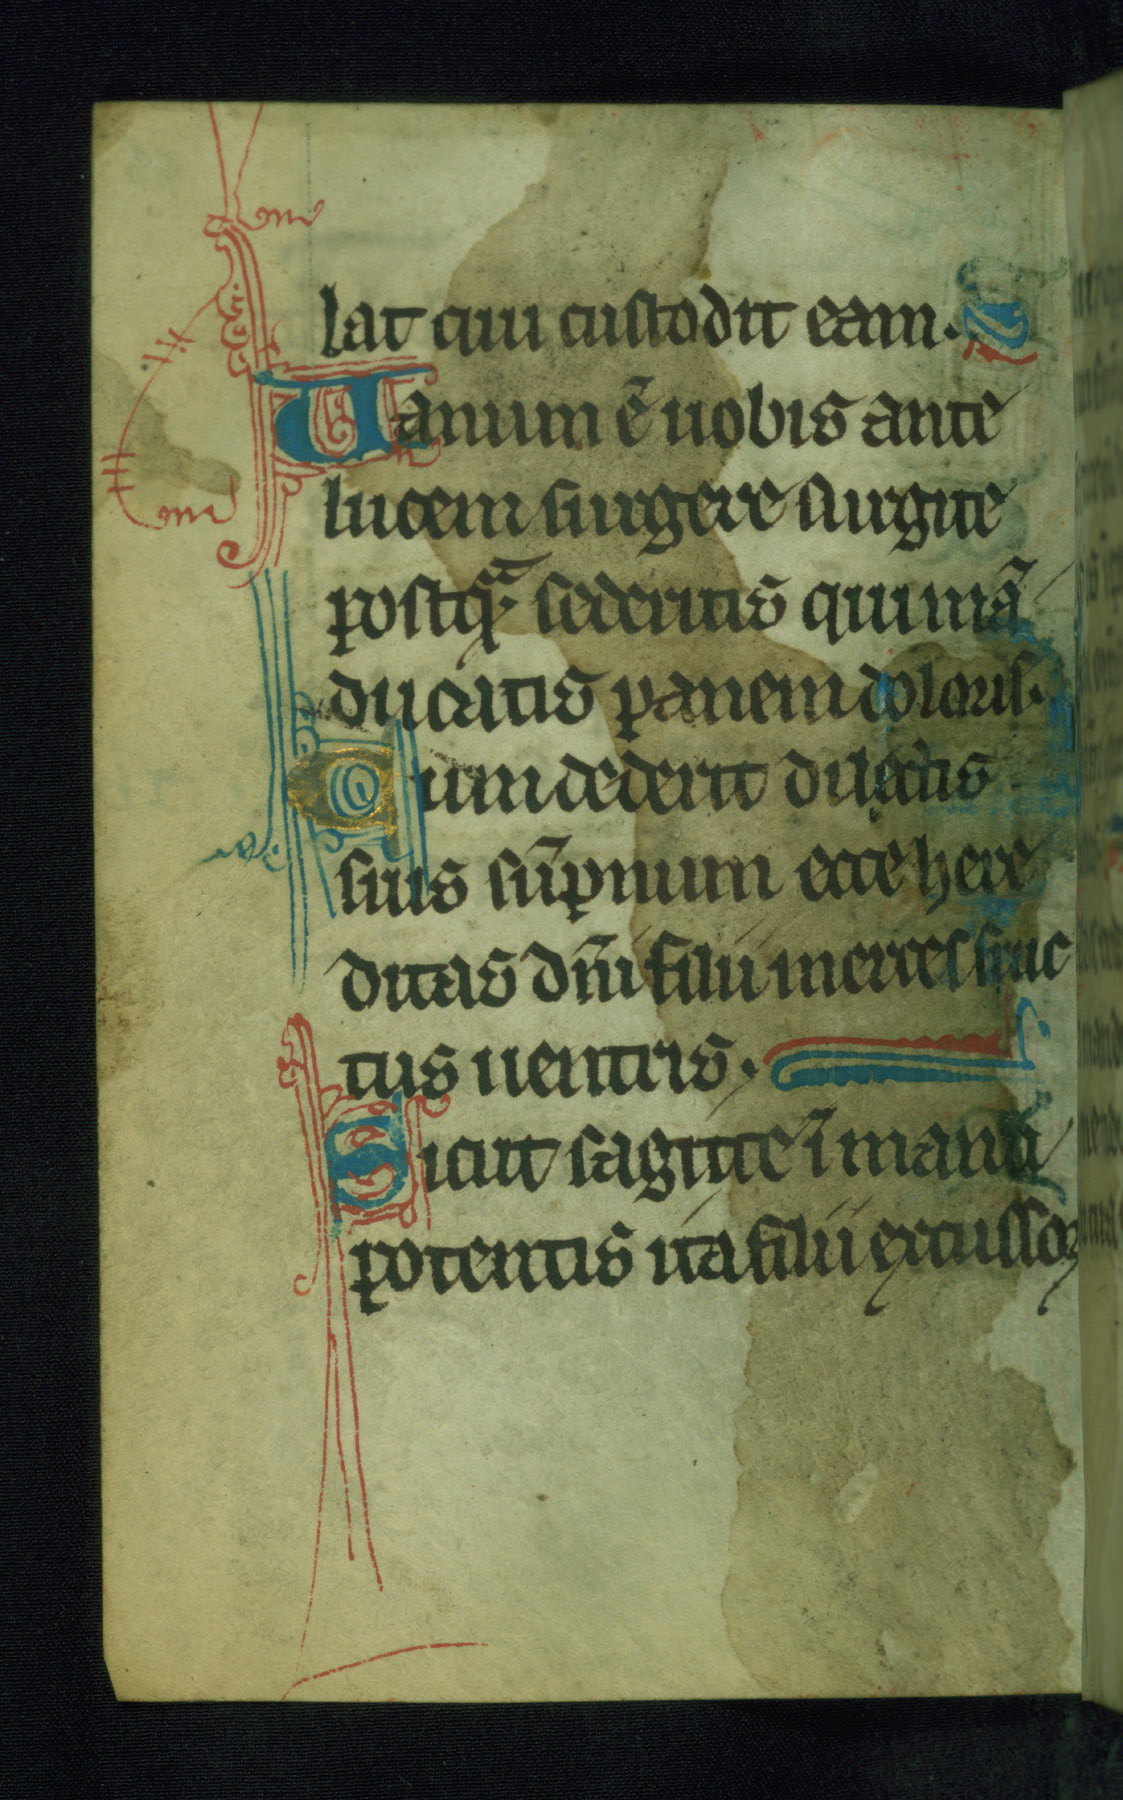 lat qui custodit eam.
Uanum ē uobis ante
lucem surgere surgite
postq̃. sederitis qui mā
ducatis panem doloris.
Cum dederit dilectis
suis sūpnum ecce here
ditas dñi filii merces fruc
tus uentris.
Sicut sagitte ī manu
potentis ita filii excussoꝝ